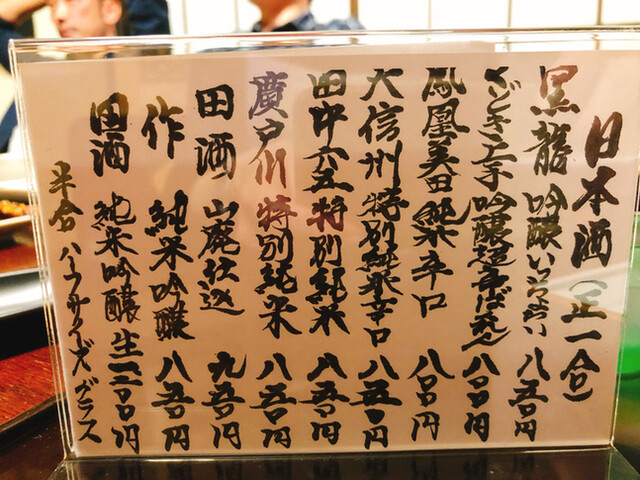 日本酒(正一合)
黒龍 吟醸いっちょらい 八五〇円
くどき上手 吟醸超辛ばくれん 八〇〇円
鳳凰美田 純米辛口 八〇〇円
大信州 特別純米辛口 八五〇円
田中六五 特別純米 八五〇円
廣戸川 特別純米 八五〇円
田酒 山廃仕込 九五〇円
作 純米吟醸 八五〇円
田酒 純米吟醸 生 一二〇〇円
半合 ハーフサイズグラス